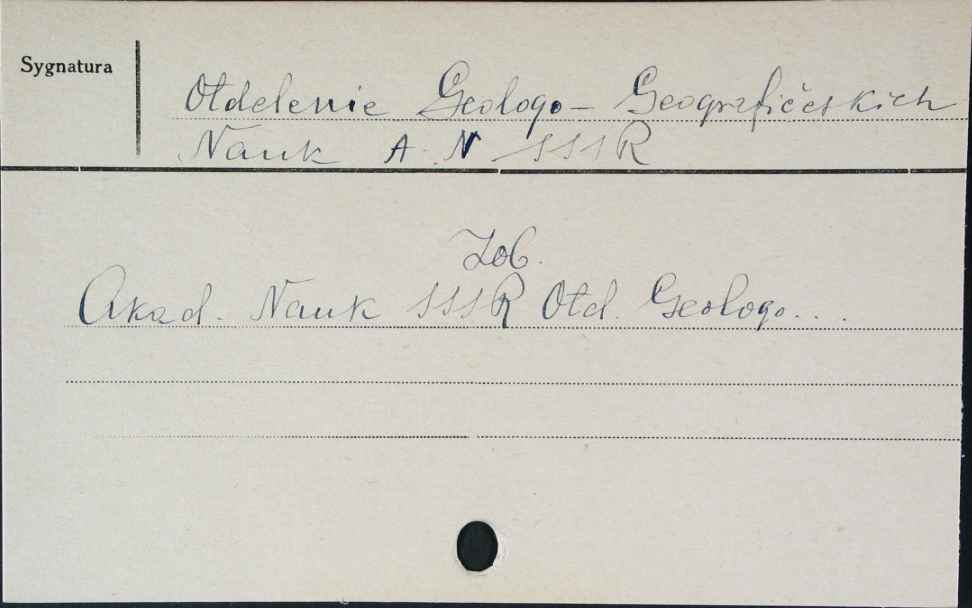 Sygnatura
Otdelenie Geologo-Geografičeskich
Nauk A.N SSSR
Zob.
Akad. Nauk SSSR Otd. Geologo...